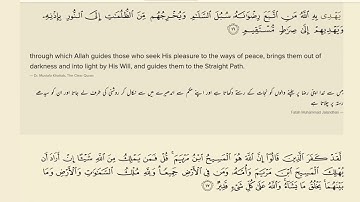 يَهْدِى بِهِ ٱللَّهُ مَنِ ٱتَّبَعَ رِضْوَٰنَهُۥ سُبُلَ ٱلسَّلَـٰمِ وَيُخْرِجُهُم مِّنَ ٱلظُّلُمَـٰتِ إِلَى ٱلنُّورِ بِإِذْنِهِۦ
وَيَهْدِيهِمْ إِلَىٰ صِرَٰطٍ مُّسْتَقِيمٍ ١٦
through which Allah guides those who seek His pleasure to the ways of peace, brings them out of
darkness and into light by His Will, and guides them to the Straight Path.
— Dr. Mustafa Khattab, The Clear Quran
جس سے خدا اپنی رضا پر چلنے والوں کو نجات کے رستے دکھاتا ہے اور اپنے حکم سے اندھیرے میں سے نکال کر روشنی کی طرف لے جاتا اور ان کو سیدھے
رستہ پر چلاتا ہے
— Fatah Muhammad Jalandhari
لَّقَدْ كَفَرَ ٱلَّذِينَ قَالُوٓا۟ إِنَّ ٱللَّهَ هُوَ ٱلْمَسِيحُ ٱبْنُ مَرْيَمَ ۚ قُلْ فَمَن يَمْلِكُ مِنَ ٱللَّهِ شَيْـًٔا إِنْ أَرَادَ أَن
يُهْلِكَ ٱلْمَسِيحَ ٱبْنَ مَرْيَمَ وَأُمَّهُۥ وَمَن فِى ٱلْأَرْضِ جَمِيعًا ۗ وَلِلَّهِ مُلْكُ ٱلسَّمَـٰوَٰتِ وَٱلْأَرْضِ وَمَا
بَيْنَهُمَا ۚ يَخْلُقُ مَا يَشَآءُ ۚ وَٱللَّهُ عَلَىٰ كُلِّ شَىْءٍ قَدِيرٌ ١٧